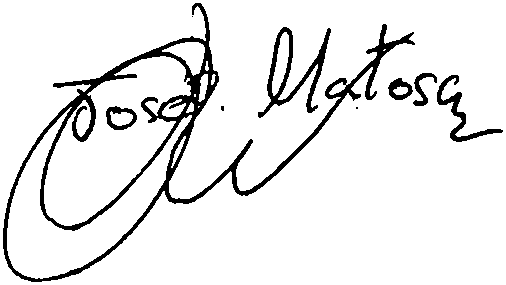 Josef. Matosa